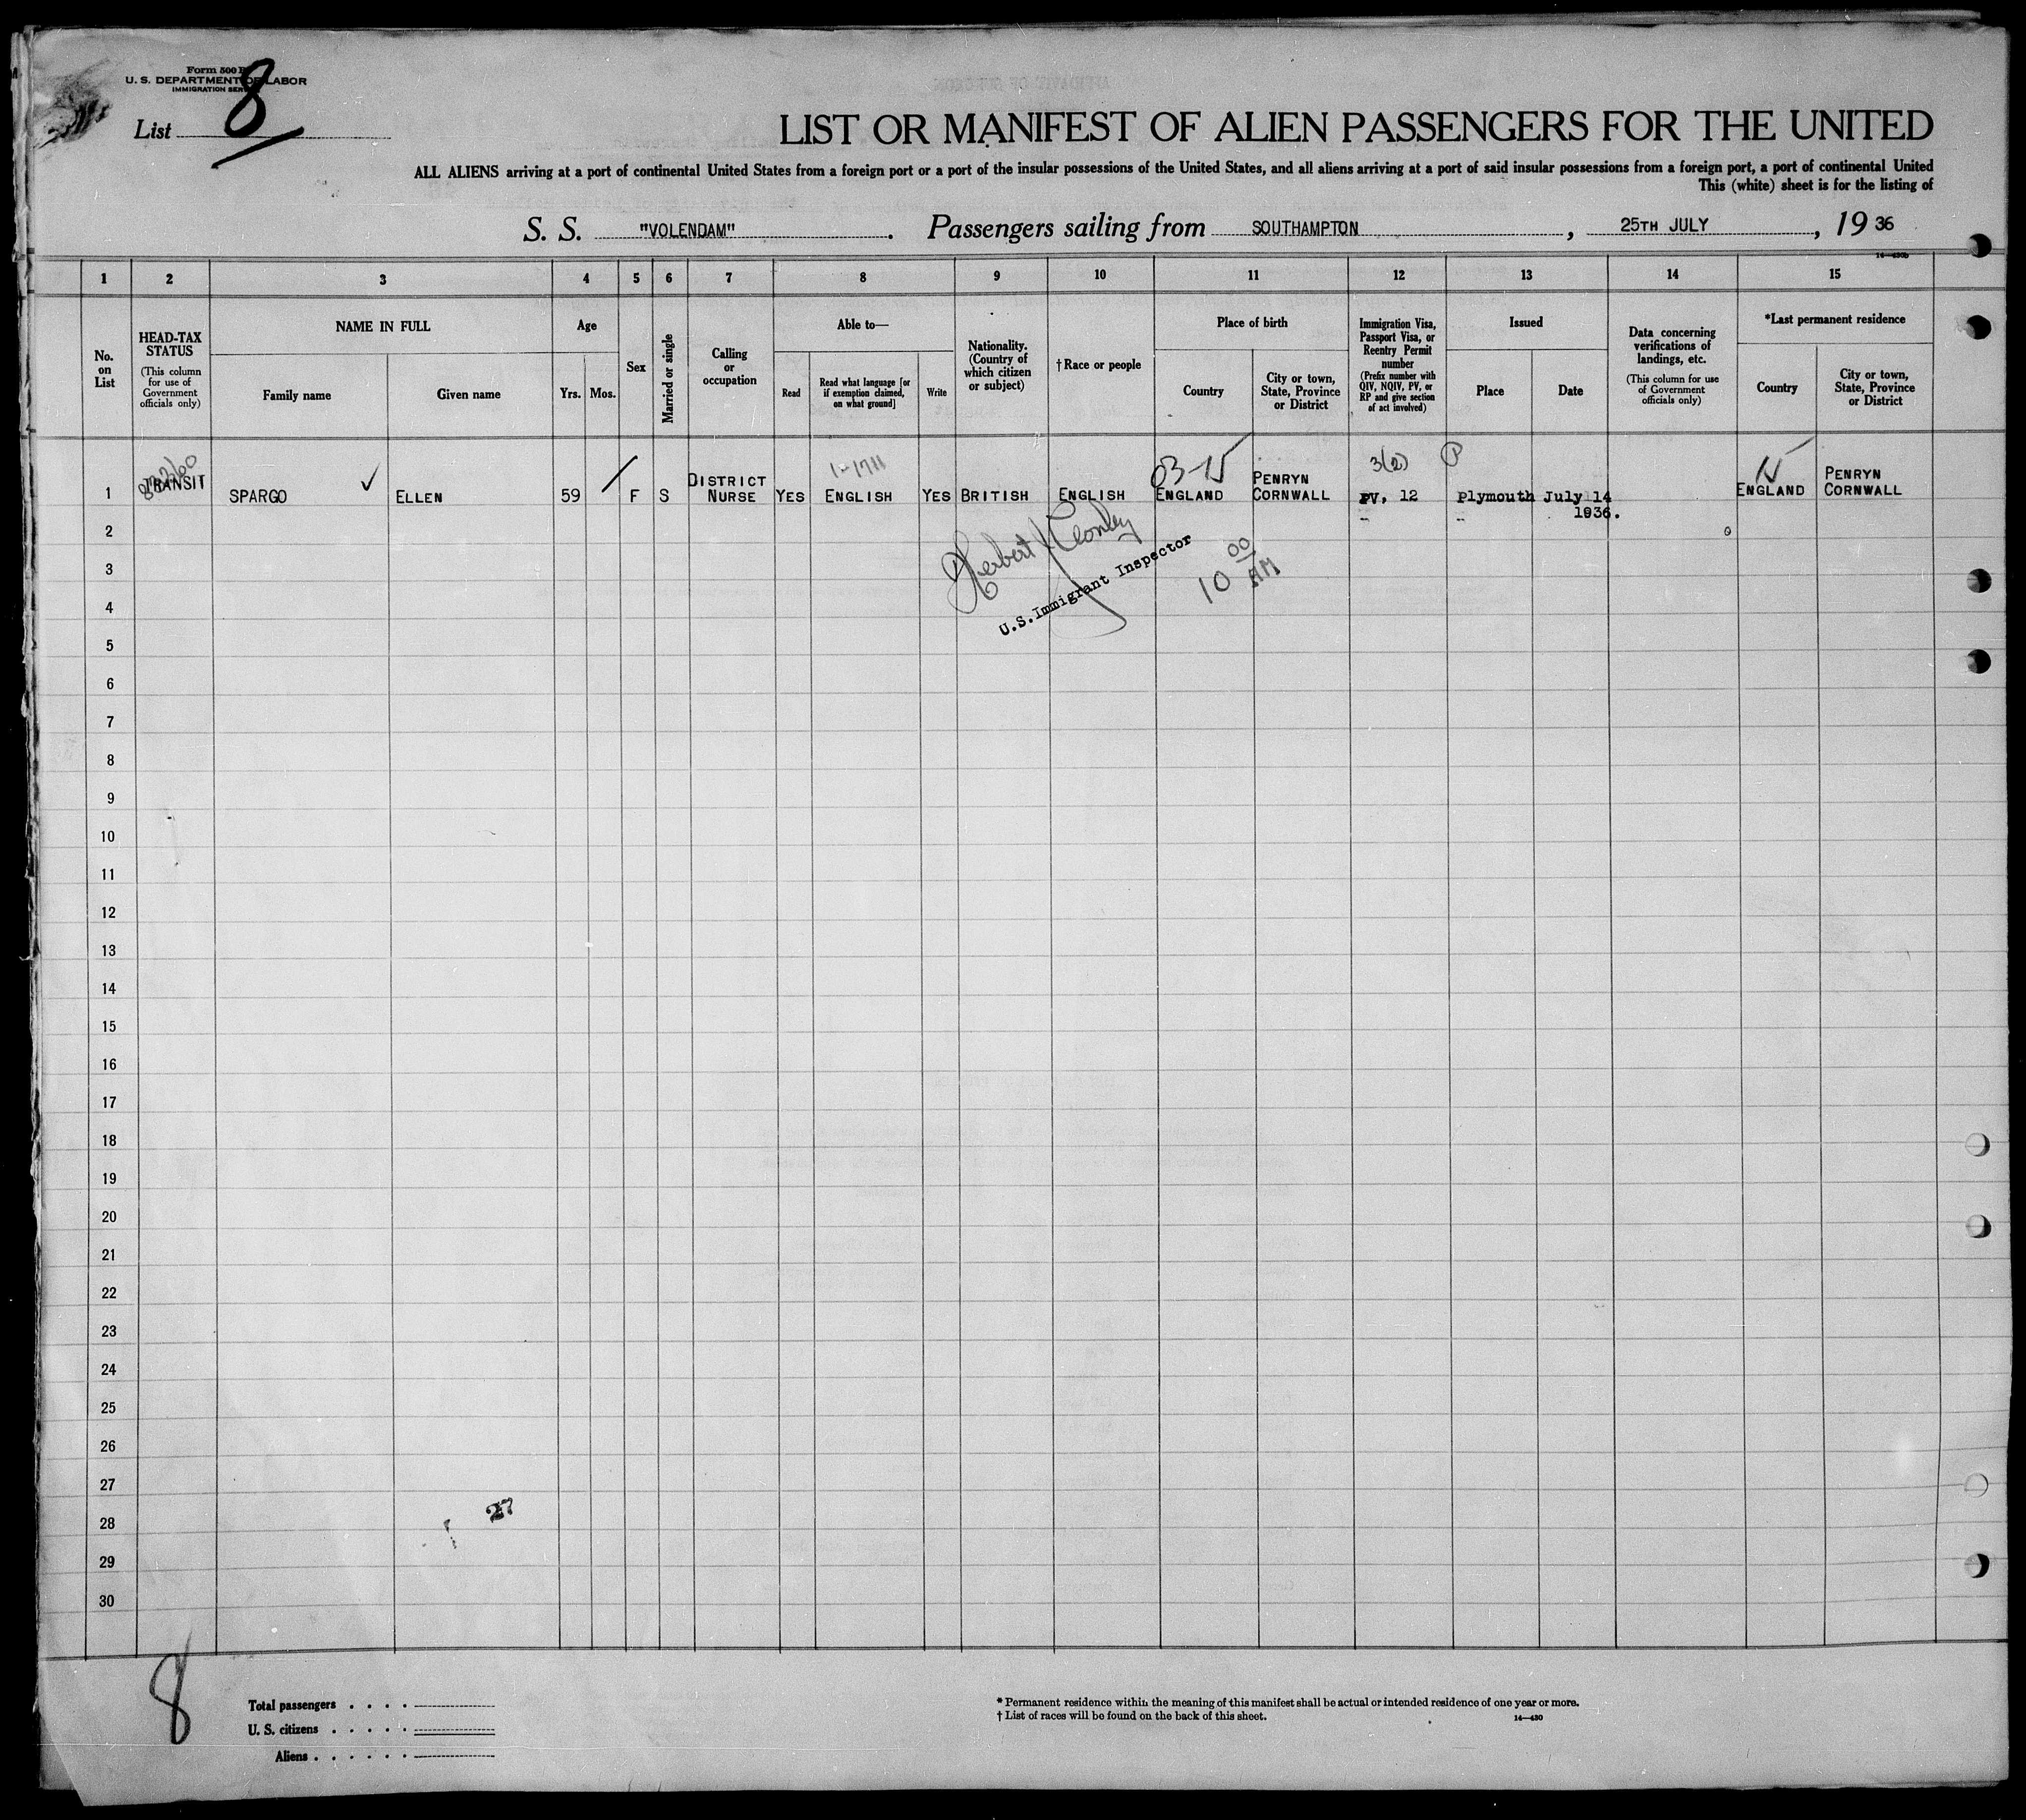 Form 500 B
U. S. DEPARTMENT OF LABOR
IMMIGRATION SERVICE
List 8
LIST OR MANIFEST OF ALIEN PASSENGERS FOR THE UNITED
ALL ALIENS arriving at a port of continental United States from a foreign port or a port of the insular possessions of the United States, and all aliens arriving at a port of said insular possessions from a foreign port, a port of continental United
This (white) sheet is for the listing of
S. S. "VOLENDAM". Passengers sailing from SOUTHAMPTON, 25TH JULY, 1936
14—430b
1 2 3 4 5 6 7 8 9 10 11 12 13 14 15
No. on List
HEAD-TAX STATUS
(This column for use of Government officials only)
NAME IN FULL
Family name
Given name
Age
Yrs. Mos.
Sex
Married or single
Calling or occupation
Able to—
Read
Read what language [or if exemption claimed, on what ground]
Write
Nationality. (Country of which citizen or subject)
†Race or people
Place of birth
Country
City or town, State, Province or District
Immigration Visa, Passport Visa, or Reentry Permit number
(Prefix number with QIV, NQIV, PV, or RP and give section of act involved)
Issued
Place
Date
Data concerning verifications of landings, etc.
(This column for use of Government officials only)
*Last permanent residence
Country
City or town, State, Province or District
1-1711 03-15 3(2) P
1 TRANSIT SPARGO ✓ ELLEN 59 F S DISTRICT NURSE YES ENGLISH YES BRITISH ENGLISH ENGLAND PENRYN CORNWALL PV, 12 Plymouth July 14 1936. ENGLAND PENRYN CORNWALL
2
3
4
5
6
7
8
9
10
11
12
13
14
15
16
17
18
19
20
21
22
23
24
25
26
27
28
29
30
Herbert
U.S.Immigrant Inspector
10 00 AM
27
8
Total passengers . . . .
U. S. citizens . . . . .
Aliens . . . . . .
* Permanent residence within the meaning of this manifest shall be actual or intended residence of one year or more.
† List of races will be found on the back of this sheet.
14—430